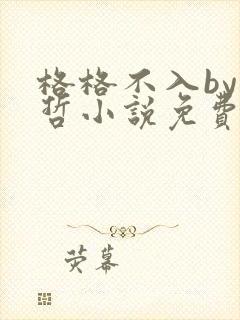 格格不入by
哲小說免費
荧幕